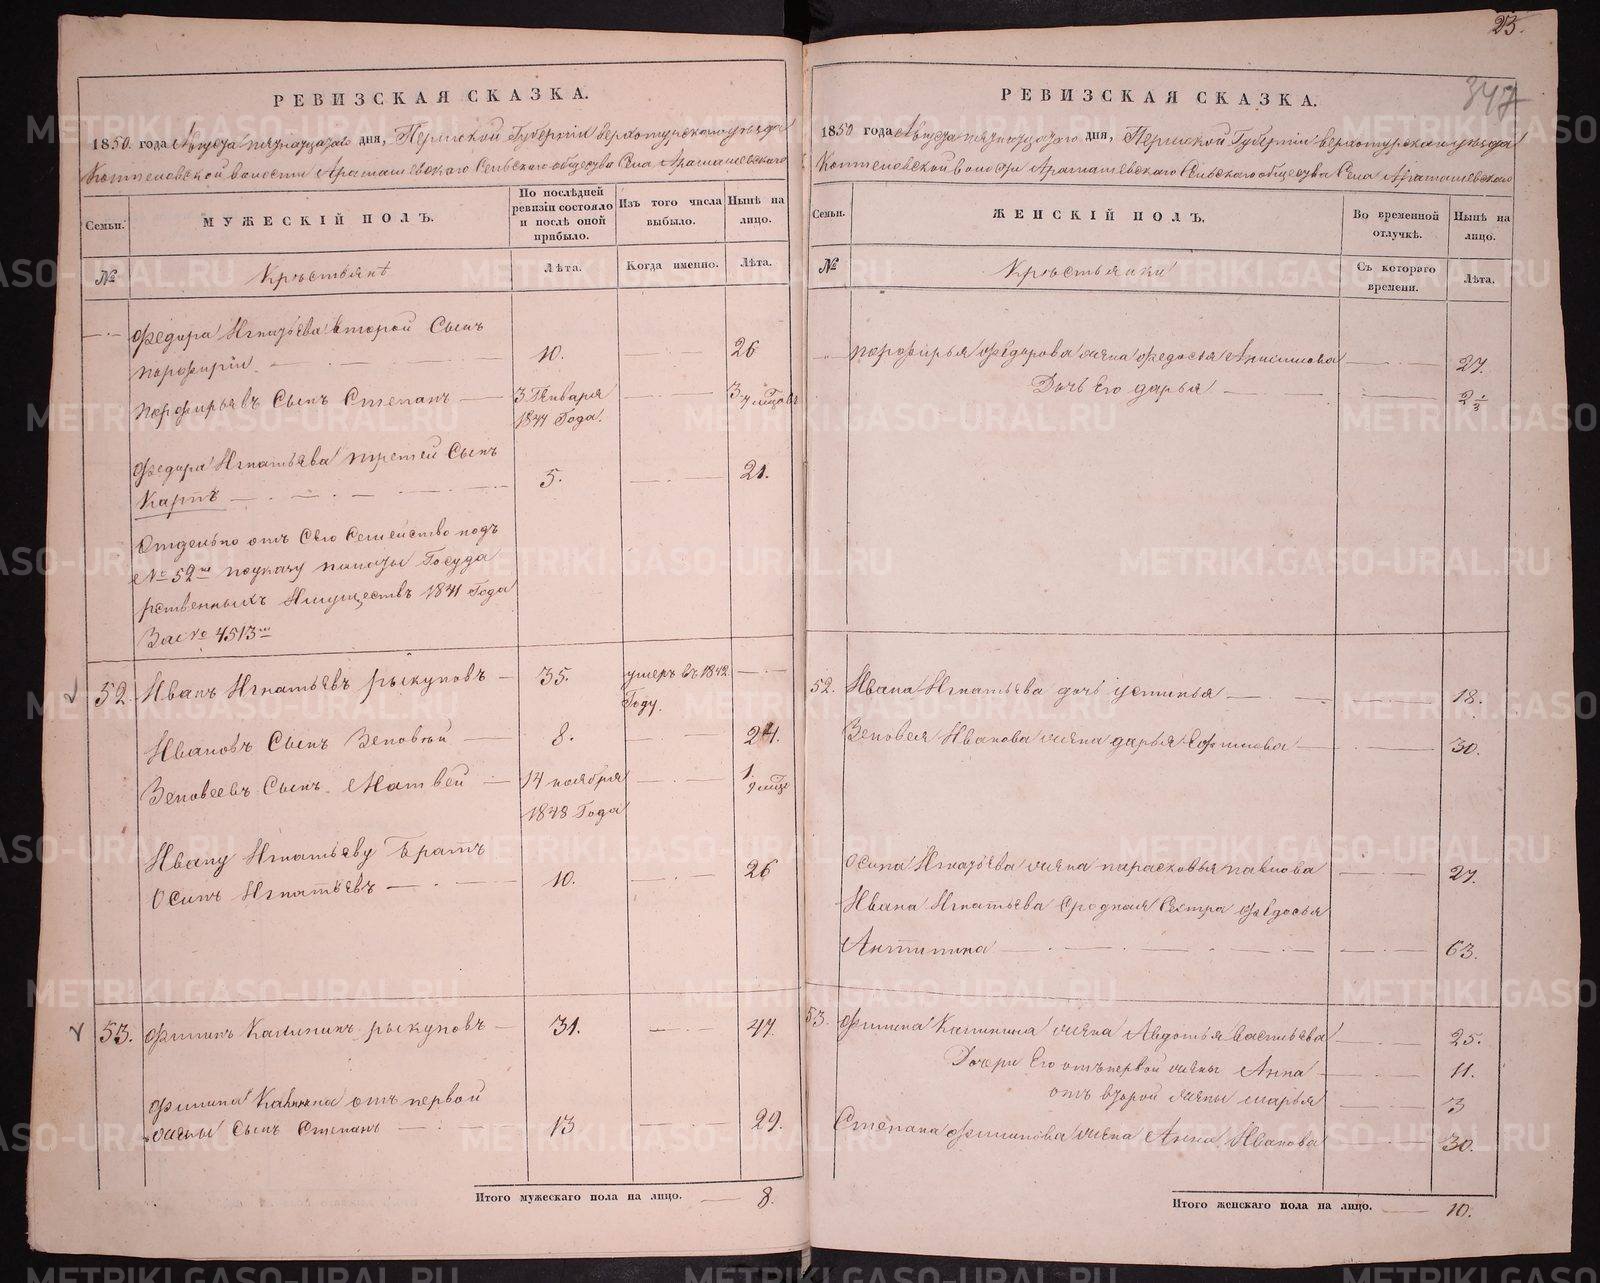 23.
347
РЕВИЗСКАЯ СКАЗКА.
1850 года Августа пятнадцатаго дня, Пермской Губернии верхотурскаго уезда
Коптеловской волости Арамашевскаго Сельскаго общества Села Арамашевскаго
Семьи.
МУЖЕСКІЙ ПОЛЪ.
По послѣдней ревизіи состояло и послѣ оной прибыло.
Изъ того числа выбыло.
Нынѣ на лицо.
№
Крестьяне
Лѣта.
Когда именно.
Лѣта.
Федора Игнатьева второй Сынъ
порфирiй 10. 26
порфирьевъ Сынъ Степанъ 3 Генваря 1847 Года. 3
Федора Игнатьева третей Сынъ
Карпъ 5. 21.
Отдельно отъ Сего Семейство подъ
№ 52м поуказу палаты Госуда
рственныхъ Имуществъ 1841 Года
За № 4513м
52. Иванъ Игнатьевъ рыкуновъ 35. умеръ въ 1842 Году.
Ивановъ Сынъ Зеновей 8. 24.
Зеновеевъ Сынъ Матвей 14 ноября 1848 Года 1
Ивану Игнатьеву братъ
Осипъ Игнатьевъ 10. 26
53. Филипъ Калининъ рыкуновъ 31. 47.
Филипа Калинина отъ первой
жены Сынъ Степанъ 13 29.
Итого мужескаго пола на лицо. 8.
РЕВИЗСКАЯ СКАЗКА.
1850 года Августа пятнадцатаго дня, Пермской Губернии верхотурскаго уезда
Коптеловской волости Арамашевскаго Сельскаго общества Села Арамашевскаго
Семьи.
ЖЕНСКІЙ ПОЛЪ.
Во временной отлучкѣ.
Нынѣ на лицо.
№
Крестьянки
Съ котораго времени.
Лѣта.
порфирья Федорова жена Федосья Анисимова 27.
Дочь Его дарья 2 1/2
52. Ивана Игнатьева дочь устинья 18.
Зеновея Иванова жена дарья Ефимова 30.
Осипа Игнатьева жена парасковья павлова 27.
Ивана Игнатьева Сродная Сестра Федосья
Антипина 63.
53. Филипа Калинина жена Авдотья васильева 25.
Дочери Его отъ первой жены Анна 11.
отъ второй жены марья 3
Степана Филипова жена Анна Иванова 30.
Итого женскаго пола на лицо. 10.
METRIKI.GASO-URAL.RU